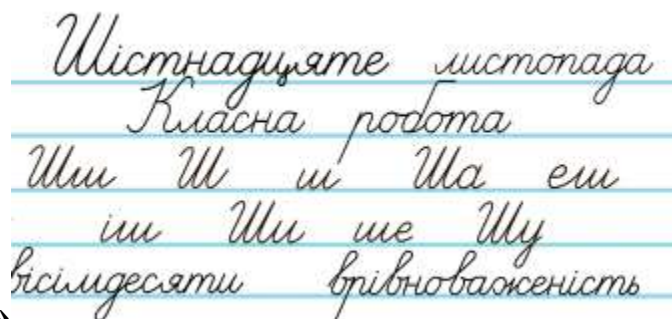 Шістнадцяте листопада
Класна робота
Шш Ш ш Ша еш
іш Ши ше Шу
вісімдесяти врівноваженість
)